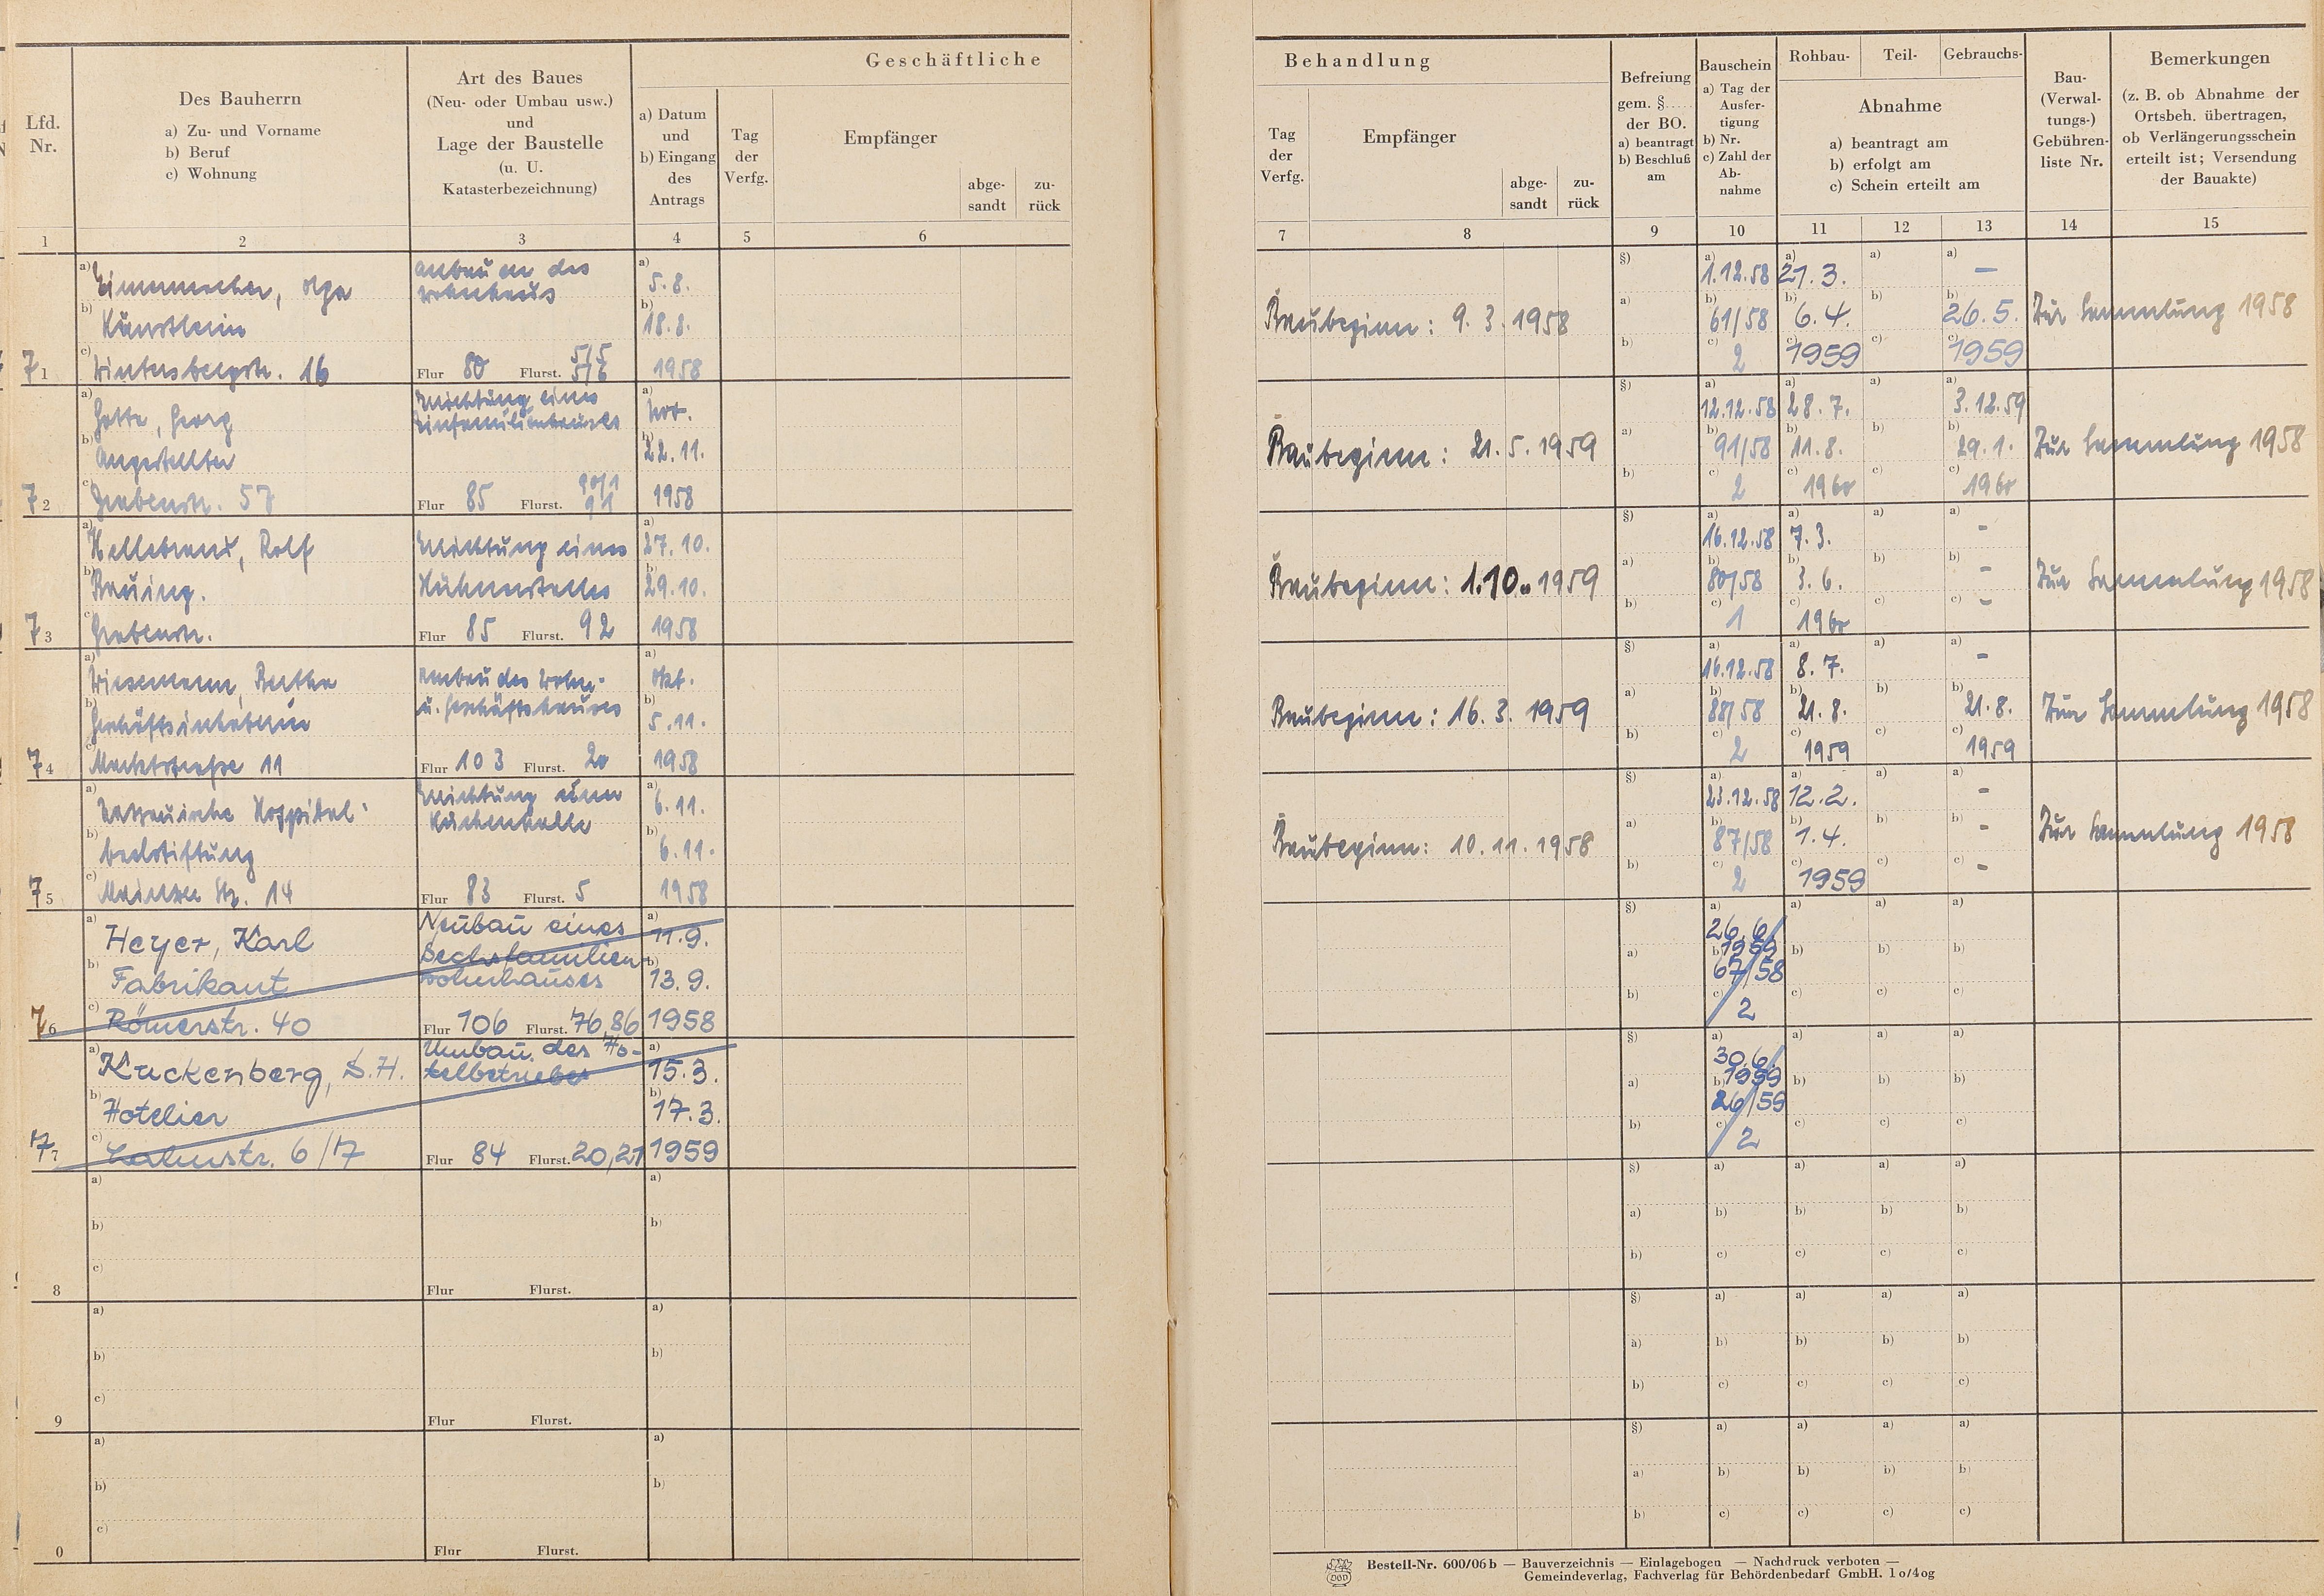 Geschäftliche
Lfd. Nr.
Des Bauherrn
a) Zu- und Vorname
b) Beruf
c) Wohnung
Art des Baues
(Neu- oder Umbau usw.)
und
Lage der Baustelle
(u. U.
Katasterbezeichnung)
a) Datum
und
b) Eingang
des
Antrags
Tag
der
Verfg.
Empfänger
abge-
sandt
zu-
rück
1 2 3 4 5 6
71
a) Olga
b) Künstlerin
c) Wintersbergstr. 16
Anbau an das
Wohnhaus
Flur 80 Flurst. 5/5
5/6
a) 5.8.
b) 18.8.
1958
72
a) Georg
b) Angestellter
c) Grabenstr. 57
Errichtung eines
Einfamilienhauses
Flur 85 Flurst. 90/1
91
a) Nov.
b) 22.11.
1958
73
a) Hellebrand, Rolf
b) Bauing.
c) Grabenstr.
Errichtung eines
Hühnerstalles
Flur 85 Flurst. 92
a) 27.10.
b) 29.10.
1958
74
a) Wiesemann, Bertha
b) Geschäftsinhaberin
c) Marktstraße 11
Umbau des Wohn-
u. Geschäftshauses
Flur 103 Flurst. 20
a) Okt.
b) 5.11.
1958
75
a) Hospital-
b) badstiftung
c) Mainzer Str. 14
Errichtung einer
Flur 83 Flurst. 5
a) 6.11.
b) 6.11.
1958
76
a) Heyer, Karl
b) Fabrikant
c) Römerstr. 40
Neubau eines
Sechsfamilien
wohnhauses
Flur 106 Flurst. 76,86
a) 11.9.
b) 13.9.
1958
77
a) Kuckenberg, D.H.
b) Hotelier
c) Lahnstr. 6/17
Umbau des Ho-
telbetriebes
Flur 84 Flurst. 20,21
a) 15.3.
b) 17.3.
1959
a)
b)
c)
8 Flur Flurst.
a)
b)
a)
b)
c)
9 Flur Flurst.
a)
b)
a)
b)
c)
0 Flur Flurst.
a)
b)
Behandlung
Tag
der
Verfg.
Empfänger
abge-
sandt
zu-
rück
Befreiung
gem. §......
der BO.
a) beantragt
b) Beschluß
am
Bauschein
a) Tag der
Ausfer-
tigung
b) Nr.
c) Zahl der
Ab-
nahme
Rohbau- Teil- Gebrauchs-
Abnahme
a) beantragt am
b) erfolgt am
c) Schein erteilt am
Bau-
(Verwal-
tungs-)
Gebühren-
liste Nr.
Bemerkungen
(z. B. ob Abnahme der
Ortsbeh. übertragen,
ob Verlängerungsschein
erteilt ist; Versendung
der Bauakte)
7 8 9 10 11 12 13 14 15
§) a) 1.12.58 a) 27.3. a) a) –
Baubeginn: 9.3.1958 a) b) 61/58 b) 6.4. b) b) 26.5. Zur Sammlung 1958
b) c) 2 c) 1959 c) c) 1959
§) a) 12.12.58 a) 28.7. a) a) 3.12.59
Baubeginn: 21.5.1959 a) b) 91/58 b) 11.8. b) b) 29.1. Zur Sammlung 1958
b) c) 2 c) 1960 c) c) 1960
§) a) 16.12.58 a) 7.3. a) a) –
Baubeginn: 1.10.1959 a) b) 80/58 b) 3.6. b) b) – Zur Sammlung 1958
b) c) 1 c) 1960 c) c) –
§) a) 16.12.58 a) 8.7. a) a) –
Baubeginn: 16.3.1959 a) b) 88/58 b) 21.8. b) b) 21.8. Zur Sammlung 1958
b) c) 2 c) 1959 c) c) 1959
§) a) 23.12.58 a) 12.2. a) a) –
Baubeginn: 10.11.1958 a) b) 87/58 b) 1.4. b) b) – Zur Sammlung 1958
b) c) 2 c) 1959 c) c) –
§) a) 26.6. a) a) a)
a) b) 1959 b) b) b)
67/58
b) c) 2 c) c) c)
§) a) 30.6. a) a) a)
a) b) 1959 b) b) b)
26/59
b) c) 2 c) c) c)
§) a) a) a) a)
a) b) b) b) b)
b) c) c) c) c)
§) a) a) a) a)
a) b) b) b) b)
b) c) c) c) c)
§) a) a) a) a)
a) b) b) b) b)
b) c) c) c) c)
Bestell-Nr. 600/06 b — Bauverzeichnis — Einlagebogen — Nachdruck verboten —
Gemeindeverlag, Fachverlag für Behördenbedarf GmbH. 1o/4og